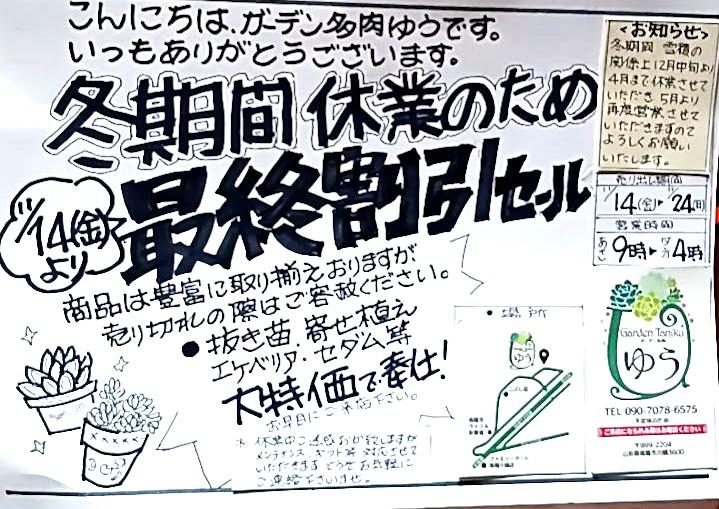 こんにちは、ガーデン多肉ゆうです。
いつもありがとうございます。
冬期間 休業のため
最終割引セール
11/14(金)
より
商品は豊富に取り揃えおりますが
売り切れの際はご容赦ください。
●抜き苗、寄せ植え
エケベリア・セダム等
大特価で奉仕!
お早目にご来店下さい。
※休業中ご迷惑おかけしますが
メンテナンス、ギフト等 対応させて
いただきます どうぞお気軽に
ご連絡下さいませ。
<お知らせ>
冬期間 雪積の
関係上12月中旬より
4月まで休業させて
いただき 5月より
再度営業させて
いただきますので
よろしくお願い
いたします。
売り出し期間
11/14(金)▸11/24(月)
営業時間
あさ9時▸夕方4時
場所
ゆう
Garden Taniku
ゆう
TEL 090-7078-6575
〒999-2204